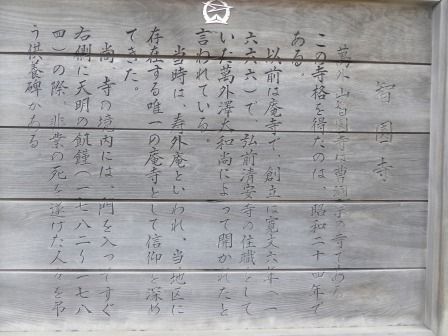 智園寺
萬外山智園寺は曹洞宗の寺であり
この寺格を得たのは、昭和二十四年で
ある。
以前は庵寺で、創立は寛文六年(一
六六六)で、弘前清安寺の住職として
いた萬外澤太和尚によって開かれたと
言われている。
当時は、寿外庵といわれ、当地区に
存在する唯一の庵寺として信仰を深め
てきた。
尚、寺の境内には、門を入ってすぐ
右側に天明の飢饉(一七八二〜一七八
四)の際、非業の死を遂げた人々を弔
う供養碑がある